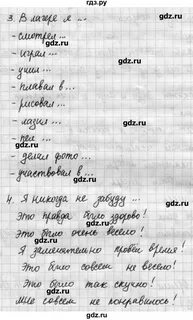 гдз.ру
3. В лагере я ...
- смотрел ...
- играл ...
- учил ...
- плавал в ...
- рисовал ...
- лазил ...
- пел ...
- делал фото ...
- участвовал в ...
4. Я никогда не забуду ...
Это правда было здорово!
Это было очень весело!
Я замечательно провел время!
Это было совсем не весело!
Это было так скучно!
Мне совсем не понравилось!
gdz.ru